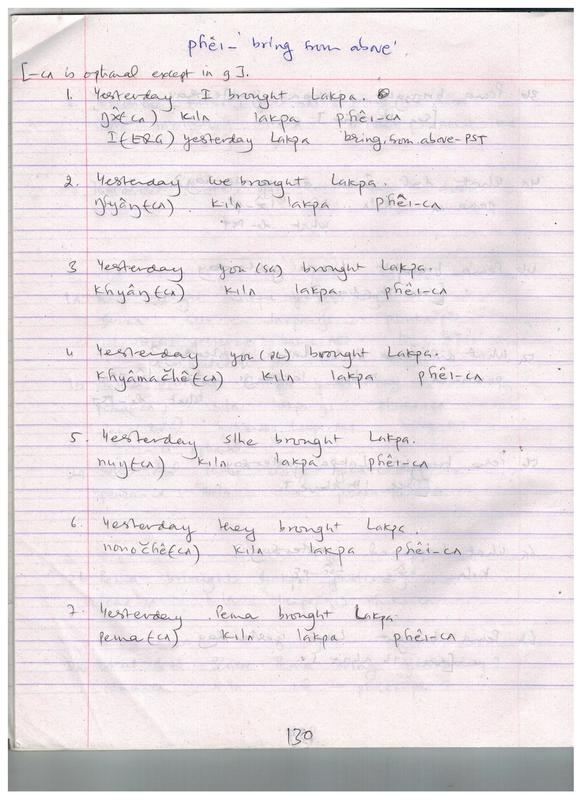 phêi- 'bring from above'
[-cʌ is optional except in 9].
1. Yesterday I brought Lakpa.
ŋʌ̂(cʌ) kilʌ lakpa phêi-cʌ
I(ERG) yesterday Lakpa bring.from.above-PST
2. Yesterday we brought Lakpa.
ŋyâŋ(cʌ) kilʌ lakpa phêi-cʌ
3 Yesterday you (SG) brought Lakpa.
khyâŋ(cʌ) kilʌ lakpa phêi-cʌ
4 Yesterday you (PL) brought Lakpa.
khyâmačhê(cʌ) kilʌ lakpa phêi-cʌ
5. Yesterday s/he brought Lakpa.
nuŋ(cʌ) kilʌ lakpa phêi-cʌ
6. Yesterday they brought Lakpa
nonočhê(cʌ) kilʌ lakpa phêi-cʌ
7. Yesterday Pema brought Lakpa.
pema(cʌ) kilʌ lakpa phêi-cʌ
130